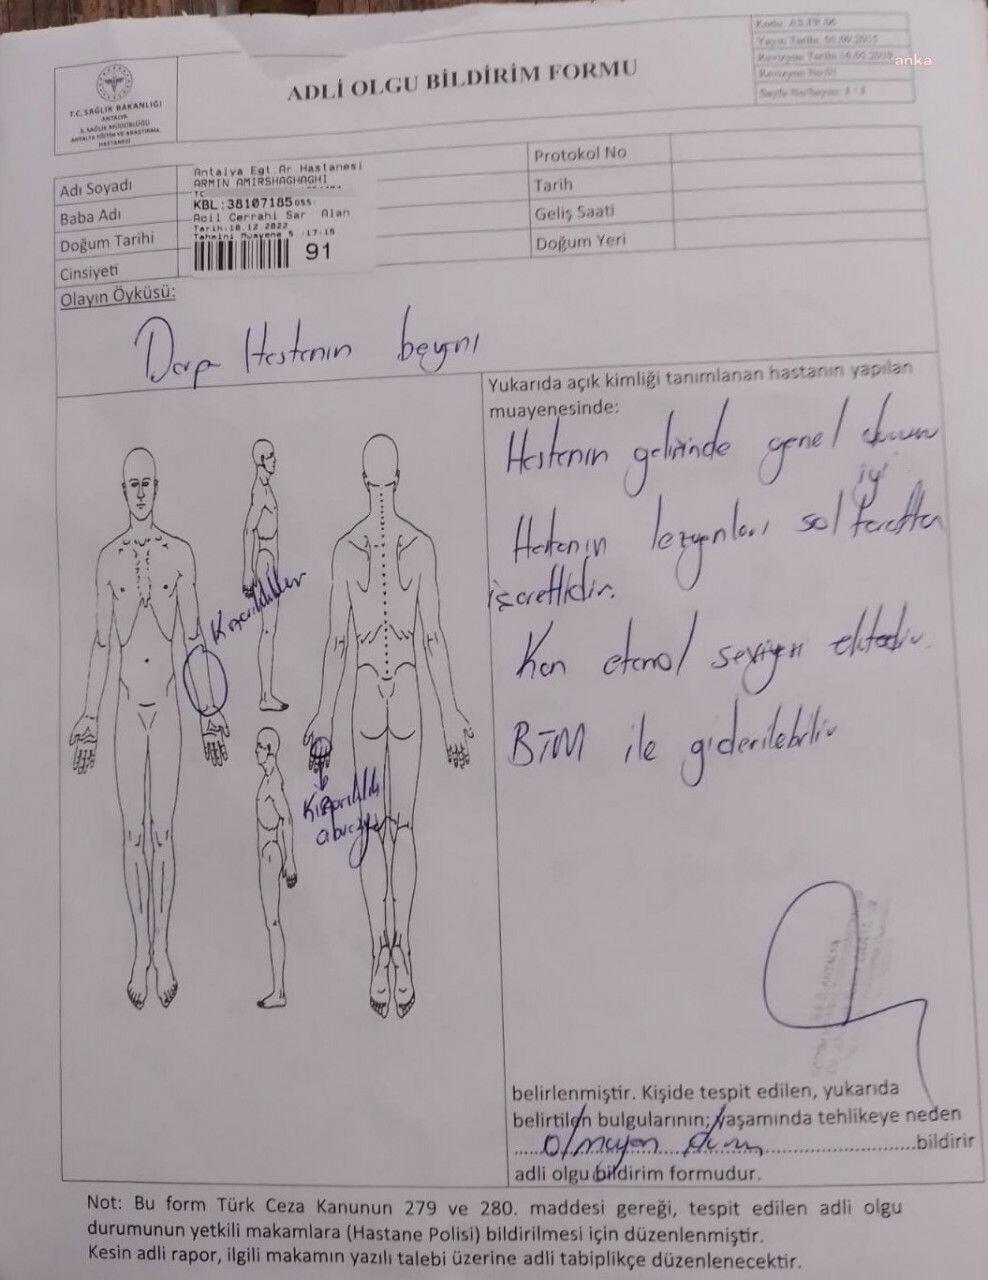 anka
T.C. SAĞLIK BAKANLIĞI
ANTALYA
İL SAĞLIK MÜDÜRLÜĞÜ
ANTALYA EĞİTİM VE ARAŞTIRMA
HASTANESİ
ADLİ OLGU BİLDİRİM FORMU
Adı Soyadı
Baba Adı
Doğum Tarihi
Cinsiyeti
Antalya Egt.Ar Hastanesi
ARMIN AMIRSHAGHAGHI
TC
KBL:38107185 OSS:
Acil Cerrahi Sar Alan
Tarih:10.12.2022
:17:15
91
Protokol No
Tarih
Geliş Saati
Doğum Yeri
Olayın Öyküsü:
Darp Hastanın beyanı
Yukarıda açık kimliği tanımlanan hastanın yapılan
muayenesinde:
Hastanın gelişinde genel durum
iyi
Hastanın lezyonları sol tarafta
işaretlidir.
Kan etanol seviyesi ektedir.
BTM ile giderilebilir
Kızarıklıklar
Kızarıklık
abrazyon
belirlenmiştir. Kişide tespit edilen, yukarıda
belirtilen bulgularının; yaşamında tehlikeye neden
olmayan durum bildirir
adli olgu bildirim formudur.
Not: Bu form Türk Ceza Kanunun 279 ve 280. maddesi gereği, tespit edilen adli olgu
durumunun yetkili makamlara (Hastane Polisi) bildirilmesi için düzenlenmiştir.
Kesin adli rapor, ilgili makamın yazılı talebi üzerine adli tabiplikçe düzenlenecektir.